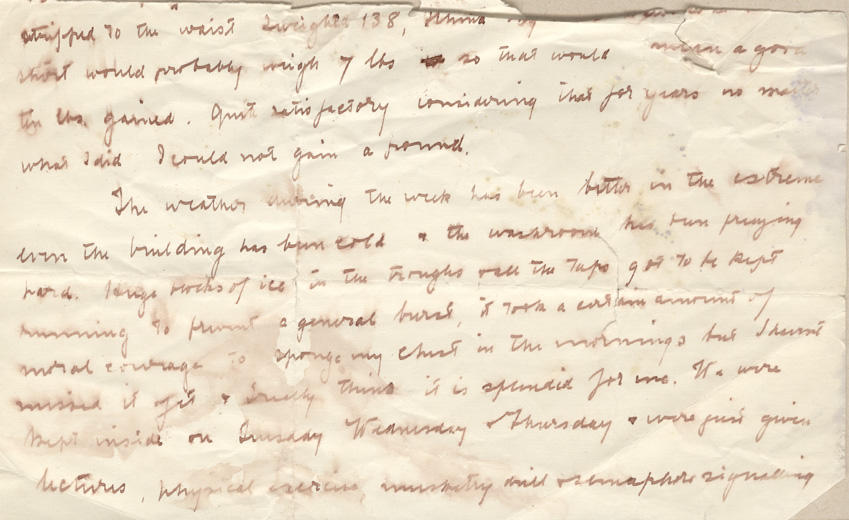 stripped to the waist I weighed 138,
shirt would probably weigh 7 lbs so that would mean a good
ten lbs. gained. Quit satisfactory considering that for years no matter
what I did I could not gain a pound.
The weather during the week has been bitter in the extreme
even the building has been cold & the washroom has been freezing
hard. Huge blocks of ice in the troughs & all the taps got to be kept
running to prevent a general burst, it took a certain amount of
moral courage to sponge my chest in the mornings but I havent
missed it yet & I really think it is splendid for me. We were
kept inside on Tuesday Wednesday & Thursday & were just given
lectures, physical exercise, musketry drill & semaphore signalling